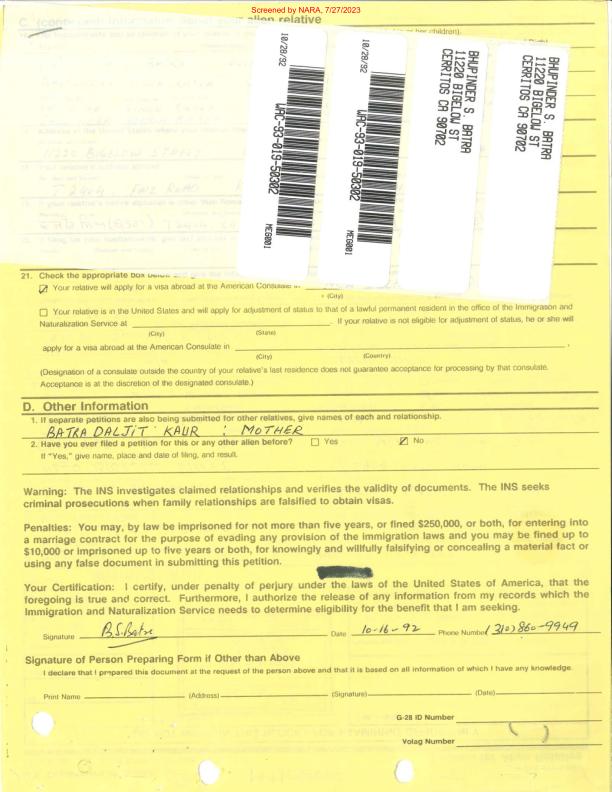 Screened by NARA, 7/27/2023
C. (continued) Information about your alien relative
10/28/92
WAC-93-019-50302
ME6001
10/28/92
WAC-93-019-50302
ME6001
BHUPINDER S. BATRA
11220 BIGELOW ST
CERRITOS CA 90702
BHUPINDER S. BATRA
11220 BIGELOW ST
CERRITOS CA 90702
21. Check the appropriate box below
Your relative will apply for a visa abroad at the American Consulate in
(City)
Your relative is in the United States and will apply for adjustment of status to that of a lawful permanent resident in the office of the Immigration and
Naturalization Service at . If your relative is not eligible for adjustment of status, he or she will
(City) (State)
apply for a visa abroad at the American Consulate in ,
(City) (Country)
(Designation of a consulate outside the country of your relative's last residence does not guarantee acceptance for processing by that consulate.
Acceptance is at the discretion of the designated consulate.)
D. Other Information
1. If separate petitions are also being submitted for other relatives, give names of each and relationship.
BATRA DALJIT KAUR : MOTHER
2. Have you ever filed a petition for this or any other alien before? Yes No
If "Yes," give name, place and date of filing, and result.
Warning: The INS investigates claimed relationships and verifies the validity of documents. The INS seeks
criminal prosecutions when family relationships are falsified to obtain visas.
Penalties: You may, by law be imprisoned for not more than five years, or fined $250,000, or both, for entering into
a marriage contract for the purpose of evading any provision of the immigration laws and you may be fined up to
$10,000 or imprisoned up to five years or both, for knowingly and willfully falsifying or concealing a material fact or
using any false document in submitting this petition.
Your Certification: I certify, under penalty of perjury under the laws of the United States of America, that the
foregoing is true and correct. Furthermore, I authorize the release of any information from my records which the
Immigration and Naturalization Service needs to determine eligibility for the benefit that I am seeking.
Signature B.S. Batra Date 10-16-92 Phone Number (310) 860-9949
Signature of Person Preparing Form if Other than Above
I declare that I prepared this document at the request of the person above and that it is based on all information of which I have any knowledge.
Print Name (Address) (Signature) (Date)
G-28 ID Number
Volag Number